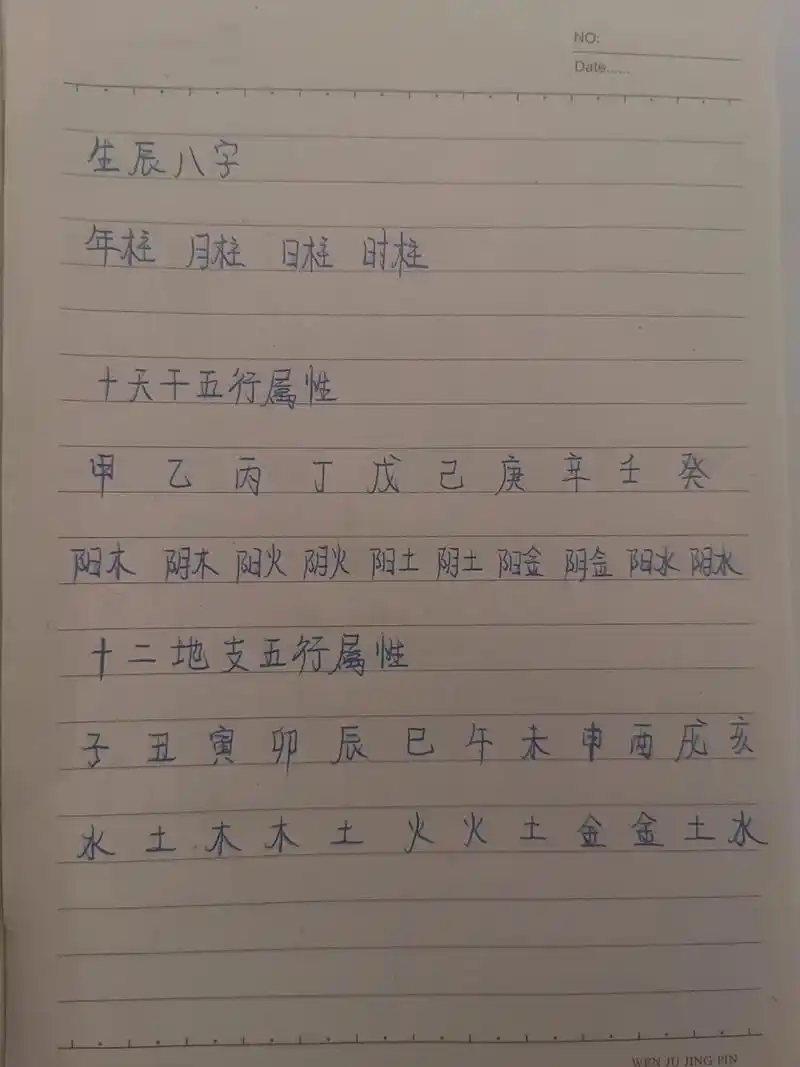 NO:
Date......
生辰八字
年柱 月柱 日柱 时柱
十天干五行属性
甲 乙 丙 丁 戊 己 庚 辛 壬 癸
阳木 阴木 阳火 阴火 阳土 阴土 阳金 阴金 阳水 阴水
十二地支五行属性
子 丑 寅 卯 辰 巳 午 未 申 酉 戌 亥
水 土 木 木 土 火 火 土 金 金 土 水
WEN JU JING PIN